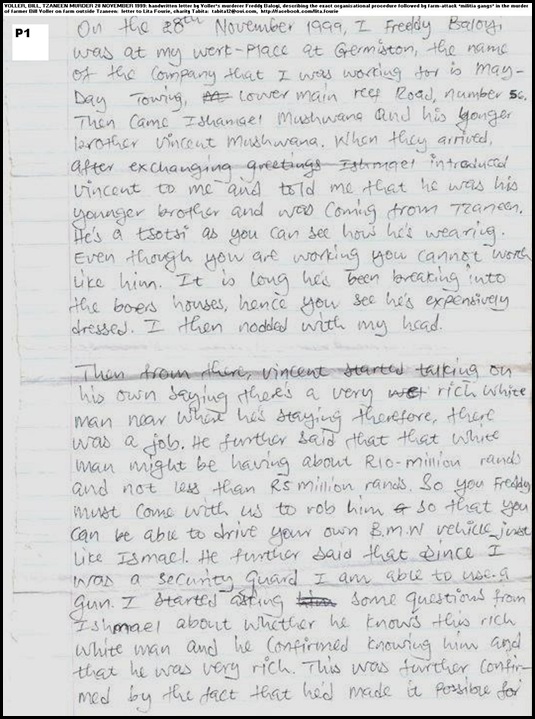 YOLLER, BILL, TZANEEN MURDER 20 NOVEMBER 1999: handwritten letter by Yoller's murderer Freddy Balogi, describing the exact organisational procedure followed by farm-attack 'militia gangs' in the murder
of farmer Bill Yoller on farm outside Tzaneen. letter to Lita Fourie, charity Tabita:
P1
On the 28th November 1999, I Freddy Baloyi,
was at my work-place at Germiston, the name
of the company that I was working for is May-
Day Towing, Lower main reef Road, number 56.
Then came Ishamael Mushwana and his yonger
brother Vincent Mushwana. When they arrived,
after exchanging greetings Ishmael introduced
Vincent to me and told me that he was his
younger brother and was coming from Tzaneen.
He's a tsotsi as you can see how he's wearing.
Even though you are working you cannot worth
like him. It is long he's been breaking into
the boers houses, hence you see he's expensively
dressed. I then nodded with my head.
Then from there, vincent started talking on
his own saying there's a very rich white
man near what he's staying therefore, there
was a job. He further said that that white
man might be having about R10-million rands
and not less than R5 million rands. So you Freddy
must come with us to rob him so that you
can be able to drive your own B.M.W vehicle just
like Ismael. He further said that since I
was a security guard I am able to use a
gun. I started asking him some questions from
Ishmael about whether he knows this rich
white man and he confirmed knowing him and
that he was very rich. This was further confir-
med by the fact that he'd made it possible for